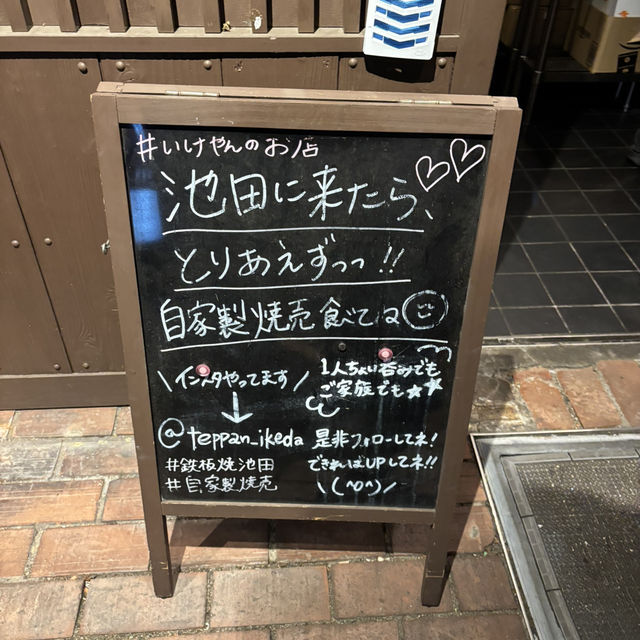 #いけやんのお店
池田に来たら、
とりあえずっっ!!
自家製焼売食べてね
\インスタやってます/
↓
@teppan_ikeda
#鉄板焼池田
#自家製焼売
1人ちょい呑みでも
ご家族でも★★
是非フォローしてネ!
できればUPしてネ!!
\(^o^)/